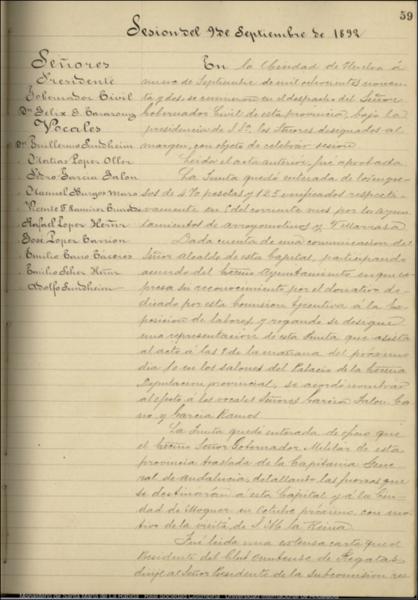 59
Sesion del 9 de Septiembre de 1892
Señores
Presidente
Gobernador Civil
Dn Felix G. Carazony
Vocales
Dn Guillermo Sundheim
Matias Lopez Oller
Pedro Garcia Jalon
Manuel Burgos Mazo
Vicente F. Ramirez
Rafael Lopez Hernz
Jose Lopez Carrion
Emilio Cano Caceres
Emilio Hernz
Adolfo Sundheim
En la Ciudad de Huelva á
nueve de Septiembre de mil ochocientos noven-
ta y dos, se reunieron en el despacho del Señor
Gobernador Civil de esta provincia, bajo la
presidencia de S. Sª. los Señores designados al
margen, con objeto de celebrar sesion
Leida el acta anterior, fué aprobada
La Junta quedó enterada de los ingre-
sos de 470 pesetas y 125 verificados respecti-
vamente en 1º del corriente mes por los ayun-
tamientos de arroyomolinos y Villarrasa
Dada cuenta de una comunicacion del
Señor alcalde de esta Capital, participando
acuerdo del Excmo Ayuntamiento en que ex-
presa su reconocimiento por el donativo de-
dicado por esta Comision Ejecutiva á la Ex-
posicion de labores, y rogando se designe
una representacion de esta Junta que asista
al acto á las 9 de la mañana del próximo
dia 10 en los salones del Palacio de la Excma
Diputacion provincial, se acordó nombrar
al efecto á los vocales Señores Garcia Jalon, Ca-
no y Garcia Ramos
La Junta quedó enterada de oficio que
el Excmo Señor Gobernador Militar de esta
provincia traslada de la Capitania Gene-
ral de Andalucia, detallando las fuerzas que
se destinarán á esta Capital y á la Ciu-
dad de Moguer en Octubre próximo, con mo-
tivo de la visita de S. M. la Reina
Fué leida una extensa carta que el
Presidente del Club onubense de Regatas
dirije al Señor Presidente de la Subcomision res-